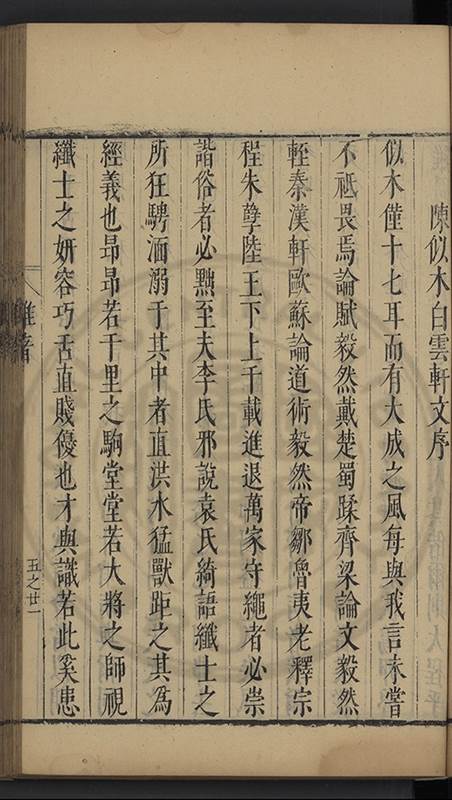 陳似木白雲軒文序
似木僅十七耳而有大成之風每與我言未嘗
不祗畏焉論賦毅然戴楚蜀蹂齊梁論文毅然
輊秦漢軒歐蘇論道術毅然帝鄒魯夷老釋宗
程朱孽陸王下上千載進退萬家守繩者必崇
諧俗者必黜至夫李氏邪說袁氏綺語纖士之
所狂騁湎溺于其中者直洪水猛獸距之其為
經義也昂昂若千里之駒堂堂若大將之師視
纖士之妍容巧舌直賤優也才與識若此奚患
五之廿一